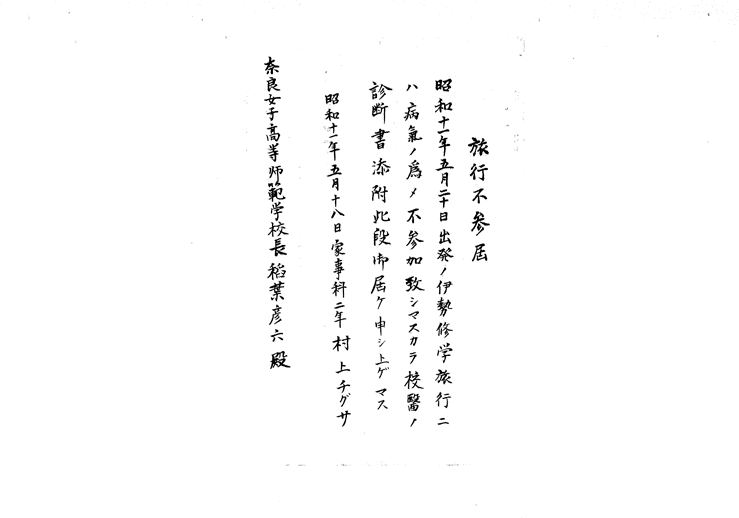 旅行不参届
昭和十一年五月二十日出発ノ伊勢修学旅行ニ
ハ病氣ノ爲メ不参加致シマスカラ校醫ノ
診断書添附此段御届ケ申シ上ゲマス
昭和十一年五月十八日家事科二年村上チグサ
奈良女子高等师範学校長稻葉彦六殿